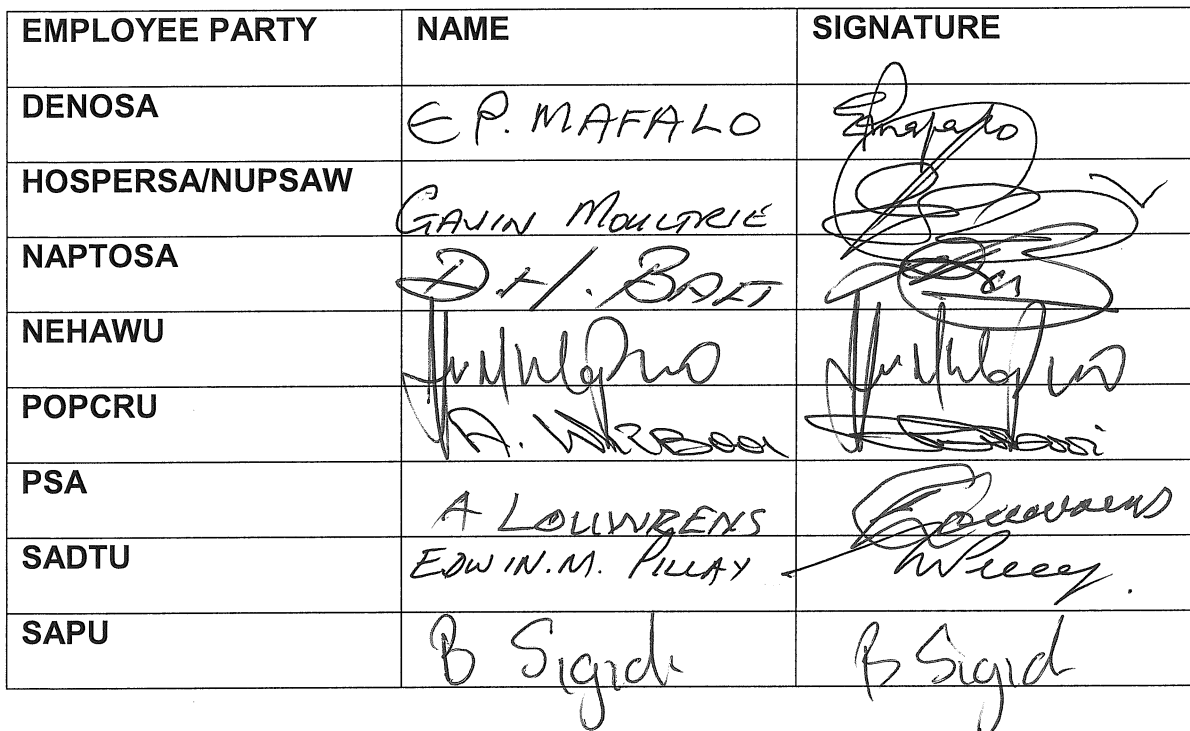 EMPLOYEE PARTY NAME SIGNATURE
DENOSA E P. MAFALO Emafalo
HOSPERSA/NUPSAW GAVIN MOULTRIE
NAPTOSA D.H.
NEHAWU
POPCRU A.
PSA A LOUWRENS Louwrens
SADTU EDWIN.M. PILLAY
SAPU B Sigidi B Sigidi